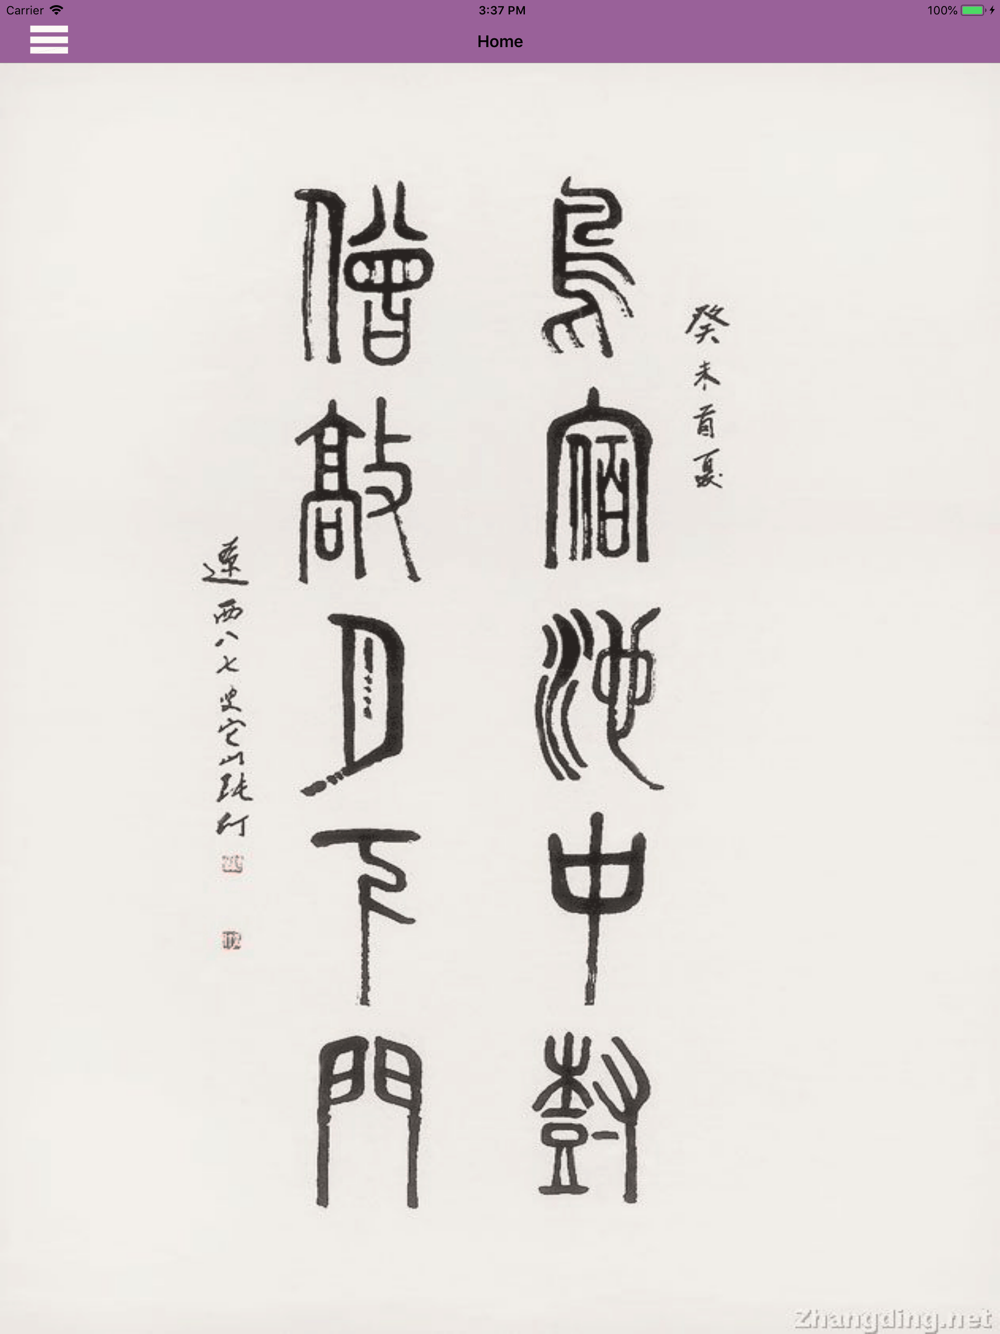 Carrier 3:37 PM 100%
Home
癸未首夏
鳥宿池中樹
僧敲月下門
遼西八七叟它山張仃
Zhangding.net